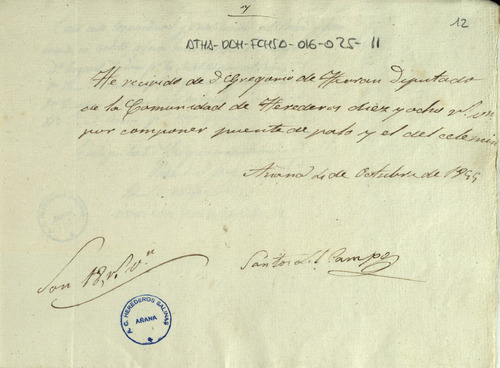 12
ATHA-DOH-FCHSA-016-025-11
He recivido de Dn Gregorio de Hurran Diputado
de la Comunidad de Herederos diez y ocho rs. vn
por componer puente de palo y el del celemin
Añana 4 de Octubre de 1855
Son 18 rs. vn
Santos del Campo
P. G. HEREDEROS SALINAS
AÑANA